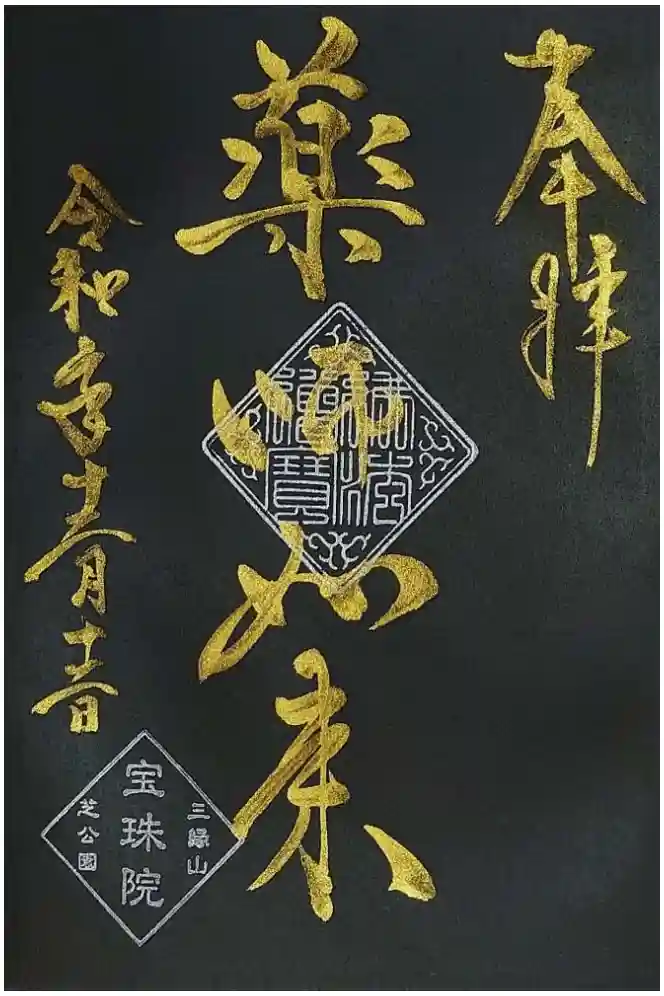 奉拝
薬師如来
佛法僧寶
令和年十月十日
三縁山
宝珠院
芝公園